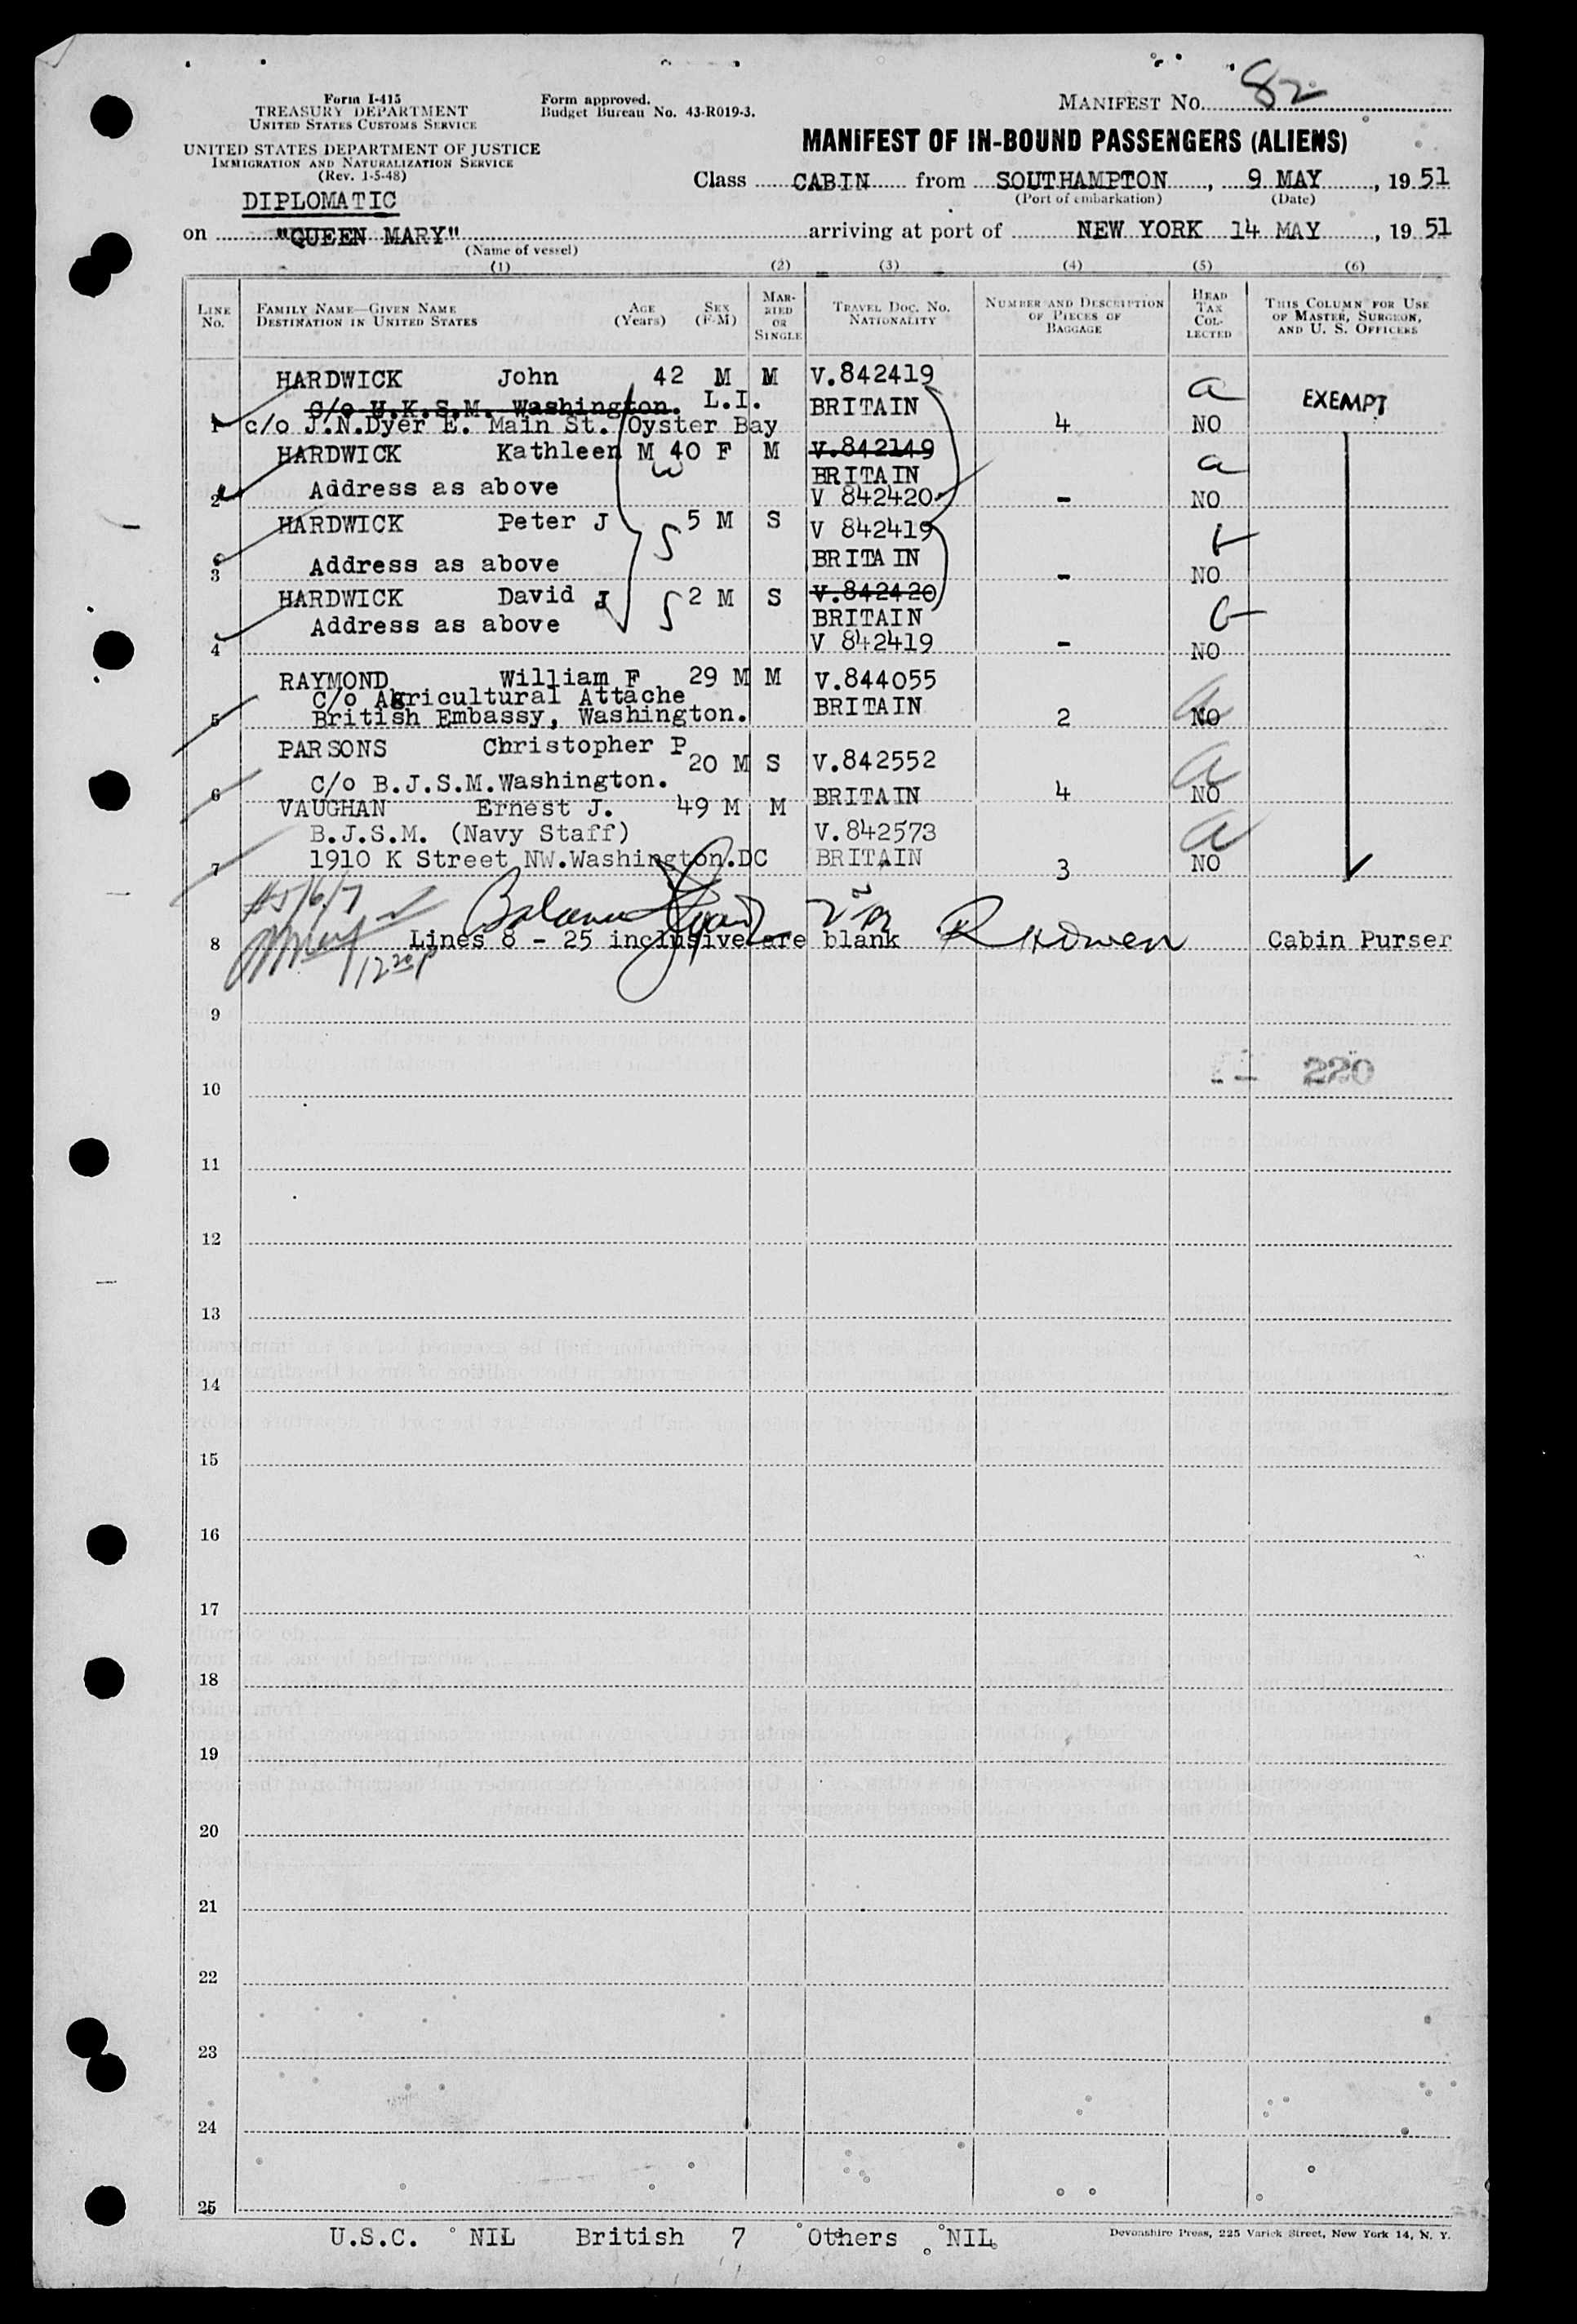 Form I-415
TREASURY DEPARTMENT
UNITED STATES CUSTOMS SERVICE
UNITED STATES DEPARTMENT OF JUSTICE
IMMIGRATION AND NATURALIZATION SERVICE
(Rev. 1-5-48)
Form approved.
Budget Bureau No. 43-R019-3.
MANIFEST NO. 82
MANIFEST OF IN-BOUND PASSENGERS (ALIENS)
Class CABIN from SOUTHAMPTON, 9 MAY, 1951
(Port of embarkation) (Date)
DIPLOMATIC
on "QUEEN MARY" arriving at port of NEW YORK 14 MAY, 1951
(Name of vessel)
(1) (2) (3) (4) (5) (6)
LINE NO. FAMILY NAME—GIVEN NAME DESTINATION IN UNITED STATES AGE (Years) SEX (F-M) MARRIED OR SINGLE TRAVEL DOC. NO. NATIONALITY NUMBER AND DESCRIPTION OF PIECES OF BAGGAGE HEAD TAX COLLECTED THIS COLUMN FOR USE OF MASTER, SURGEON, AND U. S. OFFICERS
HARDWICK John 42 M M V.842419 a EXEMPT
C/o U.K.S.M. Washington. L.I. BRITAIN
1 c/o J.N.Dyer E. Main St. Oyster Bay 4 NO
HARDWICK Kathleen M 40 F M V.842149 a
BRITAIN
2 Address as above V 842420 - NO
HARDWICK Peter J 5 M S V 842419
3 Address as above BRITAIN - NO
HARDWICK David J 2 M S V.842420
Address as above BRITAIN
4 V 842419 - NO
RAYMOND William F 29 M M V.844055
C/o Agricultural Attache BRITAIN a
5 British Embassy, Washington. 2 NO
PARSONS Christopher P 20 M S V.842552 a
6 C/o B.J.S.M.Washington. BRITAIN 4 NO
VAUGHAN Ernest J. 49 M M
B.J.S.M. (Navy Staff) V.842573 a
7 1910 K Street NW.Washington.DC BRITAIN 3 NO
#5/6/7
8 Lines 8 - 25 inclusive are blank Cabin Purser
9
220
10
11
12
13
14
15
16
17
18
19
20
21
22
23
24
25
U.S.C. NIL British 7 Others NIL
Devonshire Press, 225 Varick Street, New York 14, N. Y.